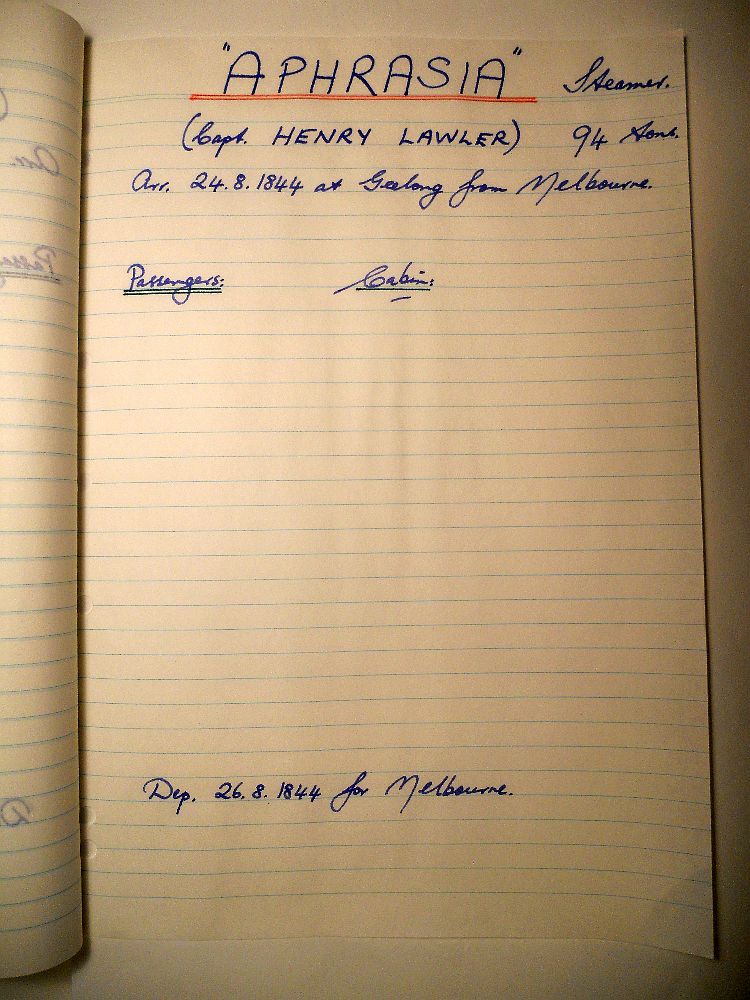 "APHRASIA" Steamer.
(Capt. HENRY LAWLER) 94 tons.
Arr. 24.8.1844 at Geelong from Melbourne.
Passengers: Cabin:
Dep. 26.8.1844 for Melbourne.